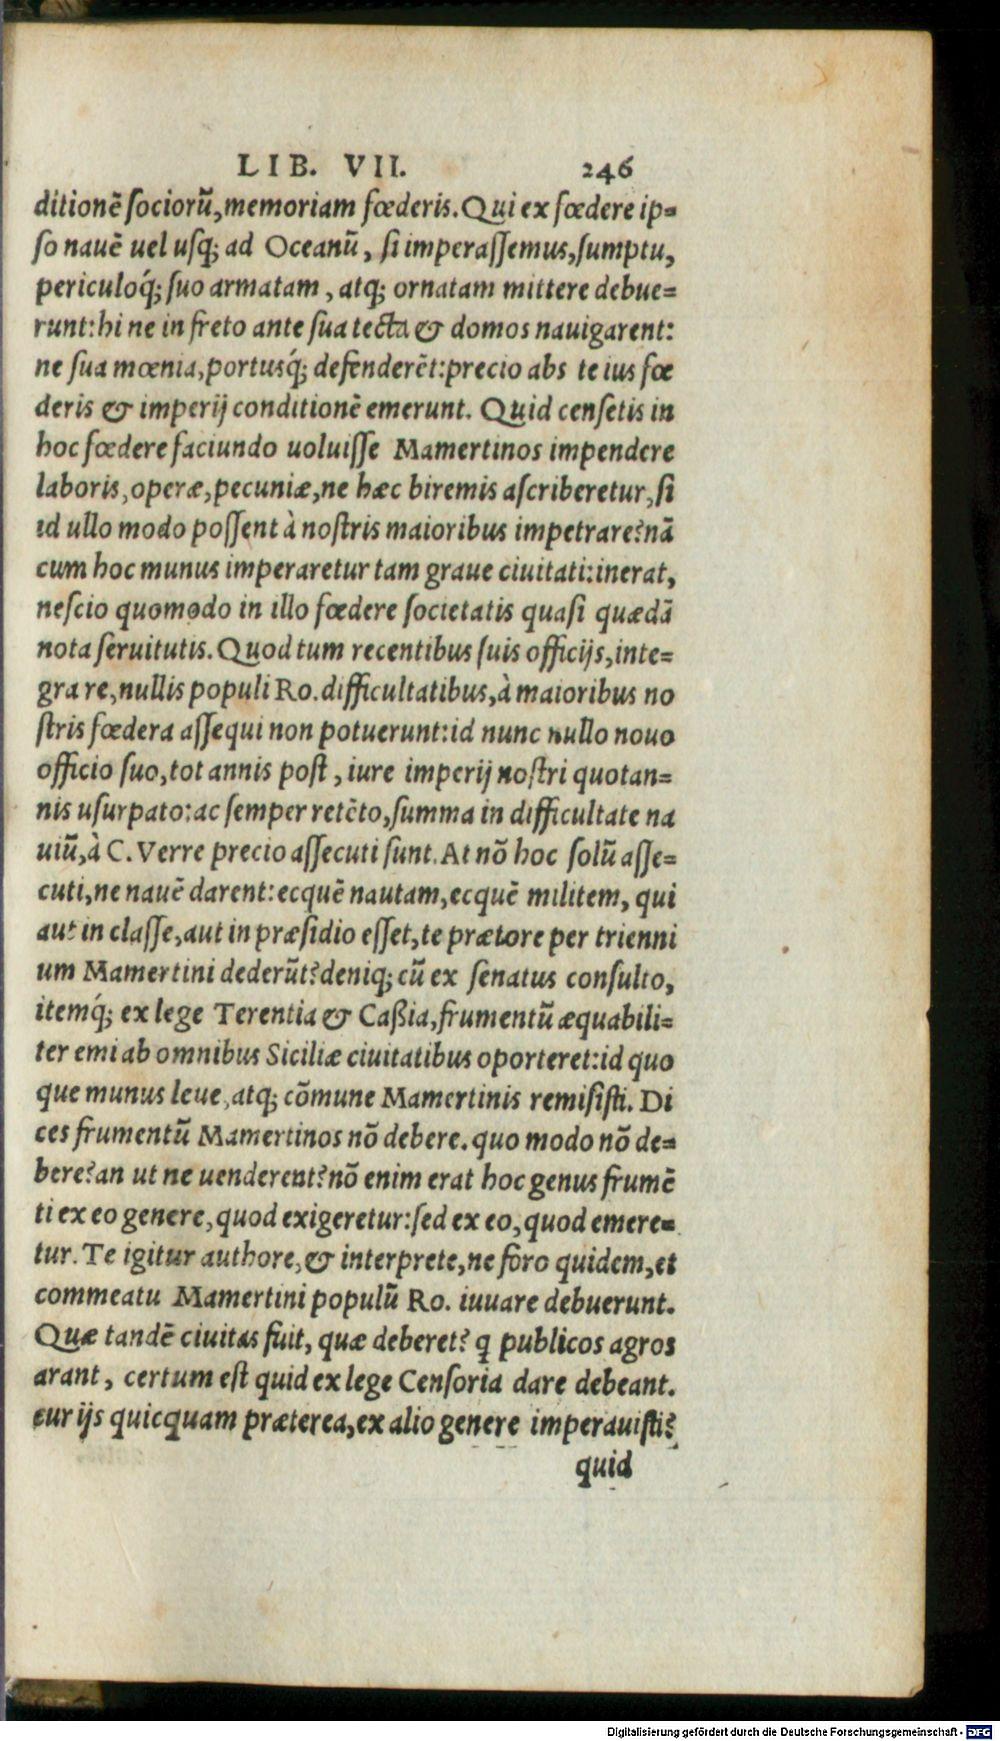 LIB. VII. 246
ditionē ſociorũ,memoriam fœderis.Qui ex fœdere ip=
ſo nauē uel uſq; ad Oceanũ, ſi imperaſſemus,ſumptu,
periculoq́; ſuo armatam, atq; ornatam mittere debue=
runt:hi ne in freto ante ſua tecta & domos nauigarent:
ne ſua mœnia,portusq́; defenderēt:precio abs te ius fœ
deris & imperij conditionē emerunt. Quid cenſetis in
hoc fœdere faciundo uoluiſſe Mamertinos impendere
laboris,operæ,pecuniæ,ne hæc biremis aſcriberetur,ſi
id ullo modo poſſent à noſtris maioribus impetrare?nā
cum hoc munus imperaretur tam graue ciuitati:inerat,
neſcio quomodo in illo fœdere ſocietatis quaſi quædā
nota ſeruitutis. Quod tum recentibus ſuis officijs,inte=
gra re,nullis populi Ro.difficultatibus,à maioribus no
ſtris fœdera aſſequi non potuerunt:id nunc nullo nouo
officio ſuo,tot annis poſt, iure imperij noſtri quotan=
nis uſurpato:ac ſemper retēto,ſumma in difficultate na
uiũ,à C.Verre precio aſſecuti ſunt.At nō hoc ſolũ aſſe=
cuti,ne nauē darent:ecquē nautam,ecquē militem, qui
aut in claſſe,aut in præſidio eſſet,te prætore per trienni
um Mamertini dederũt?deniq; cũ ex ſenatus conſulto,
itemq́; ex lege Terentia & Caßia,frumentũ æquabili=
ter emi ab omnibus Siciliæ ciuitatibus oporteret:id quo
que munus leue,atq; cōmune Mamertinis remiſiſti. Di
ces frumentũ Mamertinos nō debere. quo modo nō de=
bere?an ut ne uenderent?nō enim erat hoc genus frumē
ti ex eo genere,quod exigeretur:ſed ex eo,quod emere=
tur. Te igitur authore,& interprete,ne foro quidem,et
commeatu Mamertini populũ Ro. iuuare debuerunt.
Quæ tandē ciuitas fuit, quæ deberet? q publicos agros
arant, certum eſt quid ex lege Cenſoria dare debeant.
cur ijs quicquam præterea,ex alio genere imperauiſti?
quid
Digitalisierung gefördert durch die Deutsche Forschungsgemeinschaft - DFG